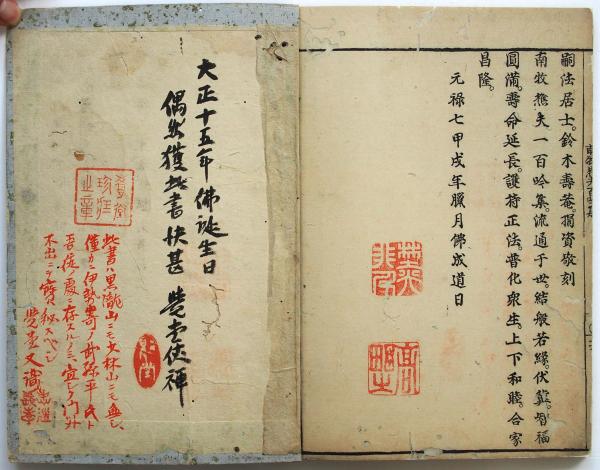 嗣法居士。鈴木壽菴。捐資敬刻
南牧樵夫一百吟集。流通于世。結般若緣。伏冀。智福
圓滿。壽命延長。護持正法。普化衆生。上下和睦。合家
昌隆。
元祿七甲戌年臘月佛成道日
大正十五年佛誕生日
偶然獲此書快甚 覺堂使禪
此書ハ黒瀧山ニモ大林山ニモ無シ
僅カニ伊勢寄ノ武孫平氏ト
吾終ノ處ニ存スルノミ宜シク門外
不出ニテ秘スベシ
覺堂又識